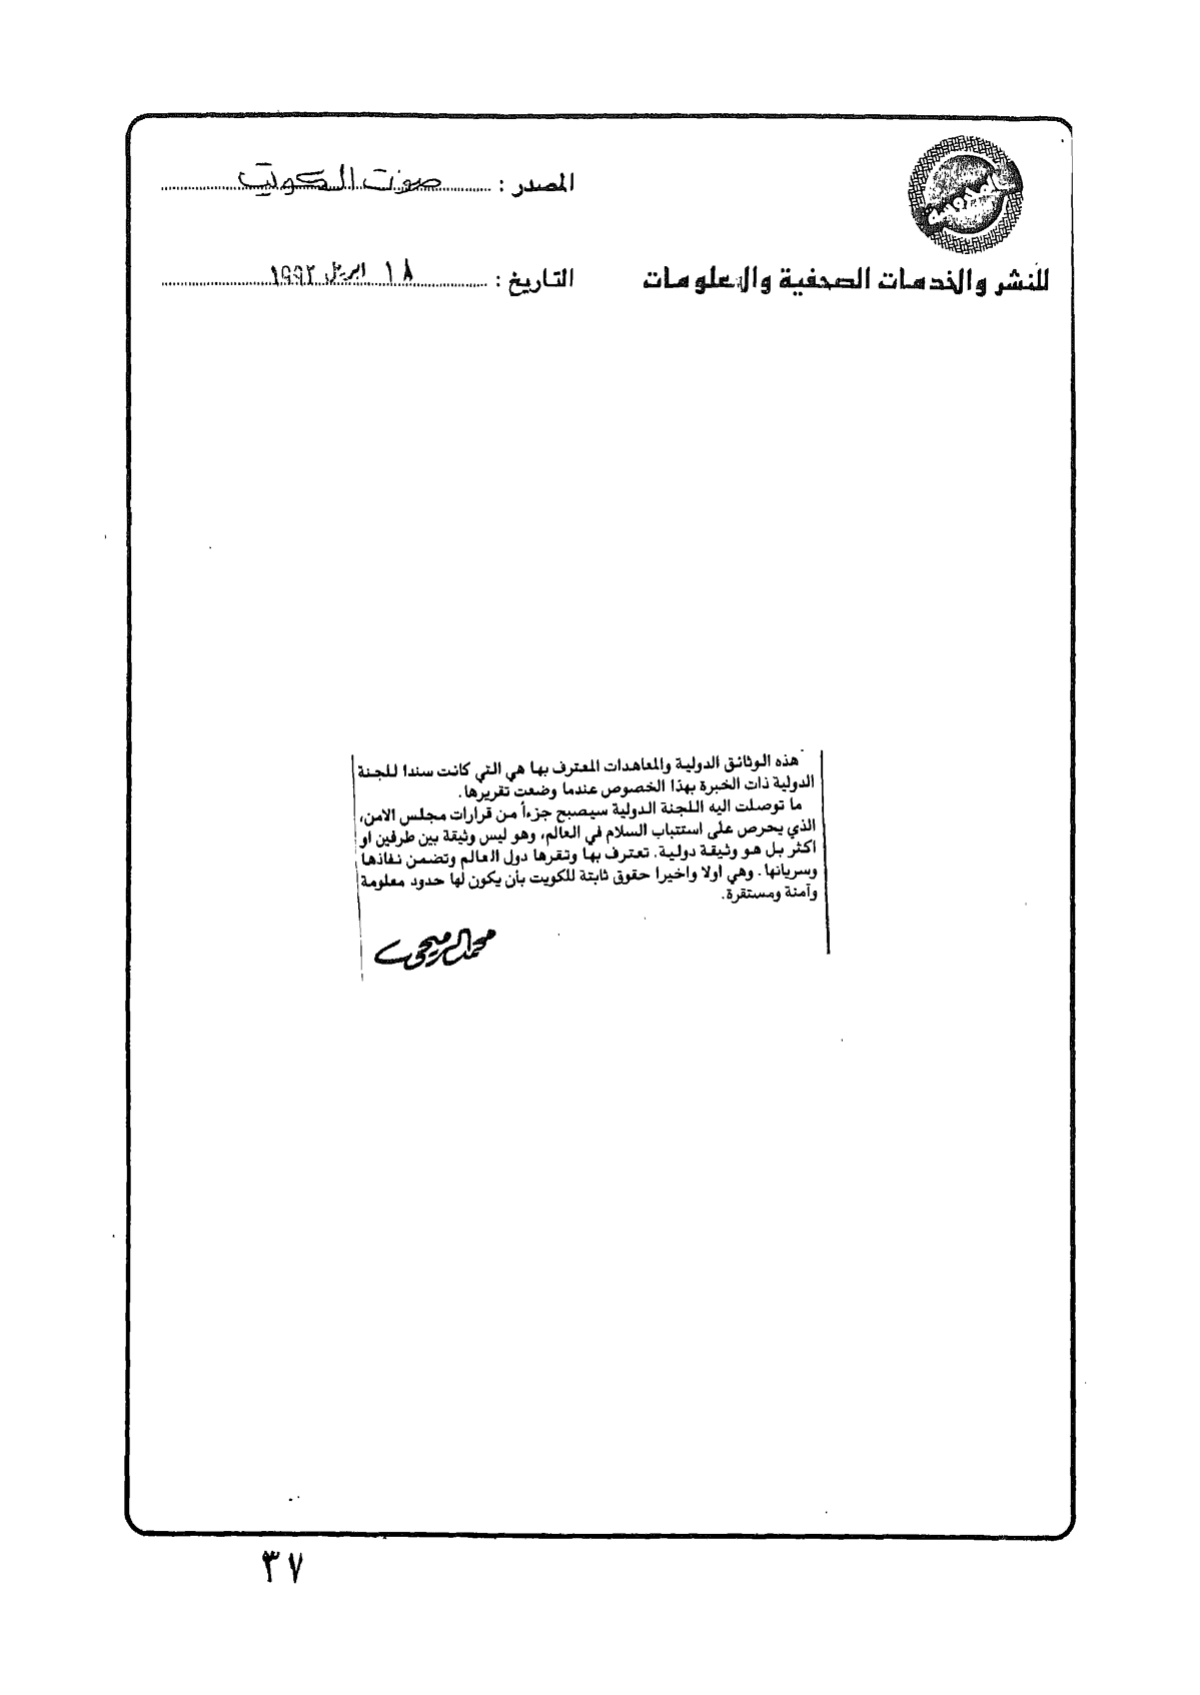 المصدر : صوت الكويت
للنشر والخدمات الصحفية والمعلومات
التاريخ : ١٨ ابريل ١٩٩٢
هذه الوثائق الدولية والمعاهدات المعترف بها هي التي كانت سندا للجنة
الدولية ذات الخبرة بهذا الخصوص عندما وضعت تقريرها.
ما توصلت اليه اللجنة الدولية سيصبح جزءاً من قرارات مجلس الامن،
الذي يحرص على استتباب السلام في العالم، وهو ليس وثيقة بين طرفين او
اكثر بل هو وثيقة دولية. تعترف بها وتقرها دول العالم وتضمن نفاذها
وسريانها. وهي اولا واخيرا حقوق ثابتة للكويت بأن يكون لها حدود معلومة
وآمنة ومستقرة.
محمد الرميحي
٣٧